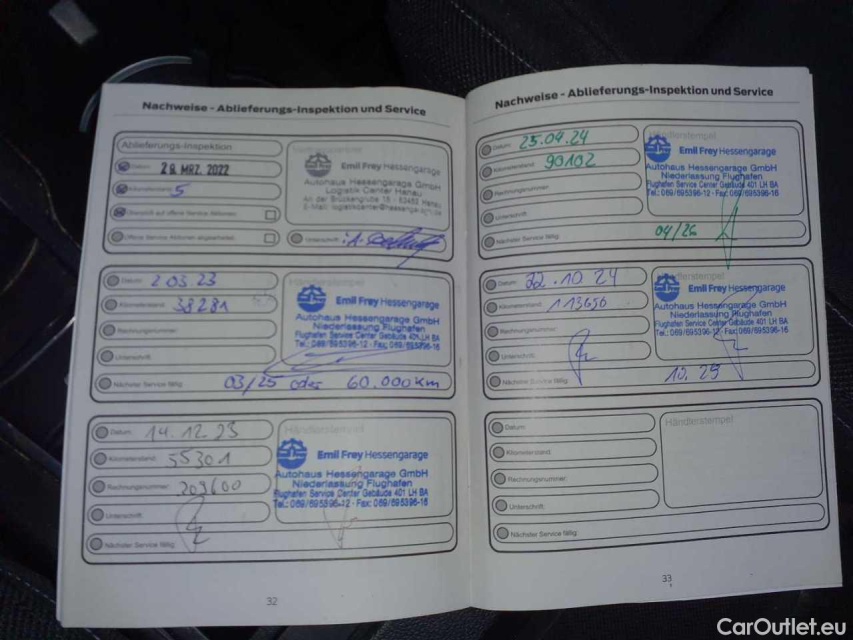 Nachweise - Ablieferungs-Inspektion und Service
Ablieferungs-Inspektion
Datum 28. MRZ. 2022
Kilometerstand 5
Überprüft auf offene Service Aktionen
Offene Service Aktionen abgearbeitet
Unterschrift
Emil Frey Hessengarage
Autohaus Hessengarage GmbH
Logistik Center Hanau
Händlerstempel
Datum 2 03.23
Kilometerstand 38281
Rechnungsnummer
Unterschrift
Nächster Service fällig 03/25 oder 60.000 km
Emil Frey Hessengarage
Autohaus Hessengarage GmbH
Niederlassung Flughafen
Flughafen Service Center Gebäude 401 LH BA
Tel.: 069/695396-12 · Fax: 069/695396-16
Händlerstempel
Datum 14.12.23
Kilometerstand 55301
Rechnungsnummer 209600
Unterschrift
Nächster Service fällig
Emil Frey Hessengarage
Autohaus Hessengarage GmbH
Niederlassung Flughafen
Flughafen Service Center Gebäude 401 LH BA
Tel.: 069/695396-12 · Fax: 069/695396-16
32
Nachweise - Ablieferungs-Inspektion und Service
Händlerstempel
Datum 25.04.24
Kilometerstand 90102
Rechnungsnummer
Unterschrift
Nächster Service fällig 04/26
Emil Frey Hessengarage
Autohaus Hessengarage GmbH
Niederlassung Flughafen
Flughafen Service Center Gebäude 401 LH BA
Tel.: 069/695396-12 · Fax: 069/695396-16
Händlerstempel
Datum 22.10 24
Kilometerstand 113656
Rechnungsnummer
Unterschrift
Nächster Service fällig 10.25
Emil Frey Hessengarage
Autohaus Hessengarage GmbH
Niederlassung Flughafen
Flughafen Service Center Gebäude 401 LH BA
Tel.: 069/695396-12 · Fax: 069/695396-16
Händlerstempel
Datum
Kilometerstand
Rechnungsnummer
Unterschrift
Nächster Service fällig
33
CarOutlet.eu